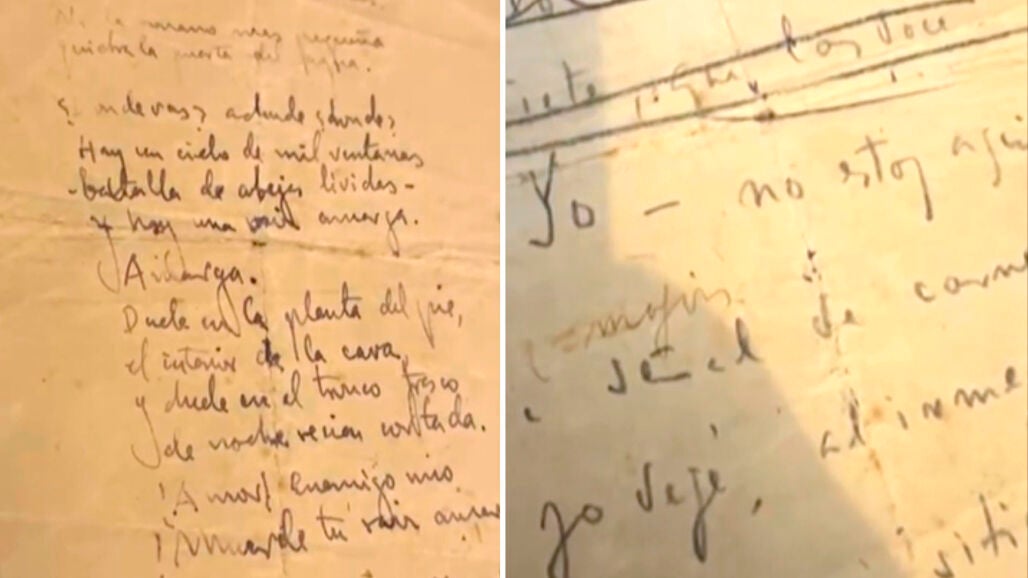 Ni la mano mas pequeña
quiebra la puerta del agua.
¿Donde vas? adonde ¿donde?
Hay un cielo de mil ventanas
-batalla de abejas lividas-
y hay una raiz amarga.
Amarga.
Duele en la planta del pie,
el interior de la cara,
y duele en el tronco fresco
de noche recien cortada.
¡Amor! enemigo mio
¡Muerde tu raiz amar
siete las doce
Yo - no estoy aqui
señal de carne
yo dejé, al irme